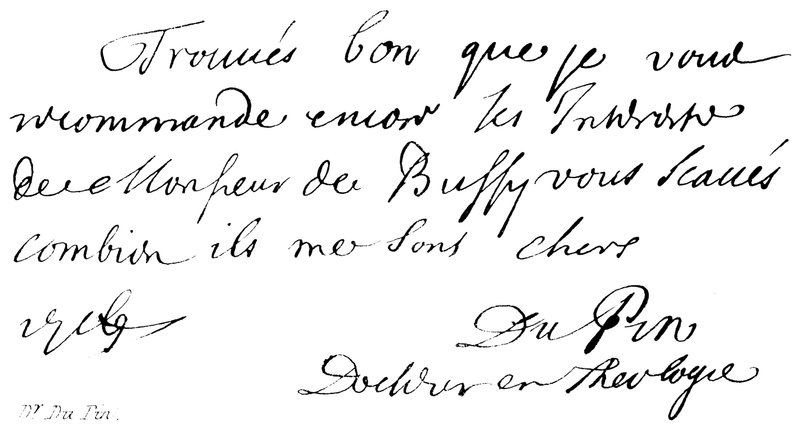 Trouués bon que je vous
recommande encore les Interests
de Monsieur de Bussy vous scaués
combien ils me sont chers
Du Pin
Docteur en theologie
Dr. Du Pin.